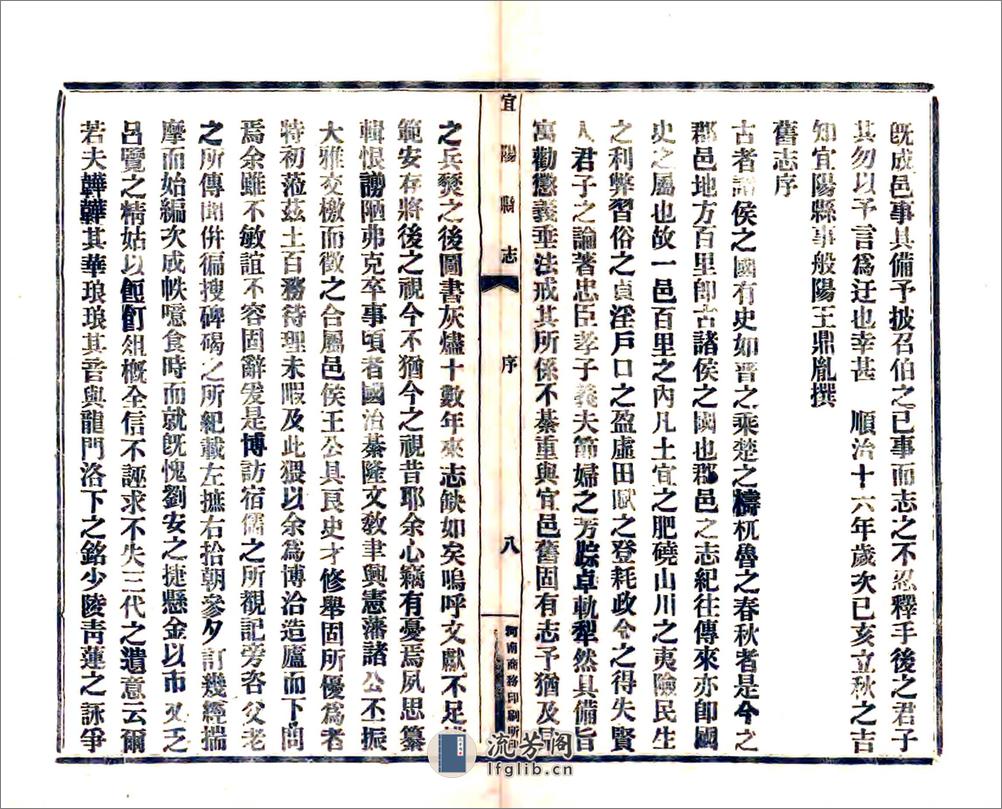 既成邑事具備予披召伯之已事而志之不忍釋手後之君子
其勿以予言爲迂也幸甚　順治十六年歲次已亥立秋之吉
知宜陽縣事般陽王鼎胤撰
舊志序
古者諸侯之國有史如晋之乘楚之檮杌魯之春秋者是今之
郡邑地方百里卽古諸侯之國也郡邑之志紀往傳來亦卽國
史之屬也故一邑百里之內凡土宜之肥磽山川之夷險民生
之利弊習俗之貞淫戶口之盈虛田賦之登耗政令之得失賢
人君子之論著忠臣孝子義夫節婦之芳踪卓軌犁然具備旨
寓勸懲義垂法戒其所係不綦重與宜邑舊固有志予猶及見
宜陽縣志
序
八
河南商務印刷所
之兵燹之後圖書灰燼十數年來志缺如矣嗚呼文獻不足
範安存將後之視今不猶今之視昔耶余心竊有憂焉夙思纂
輯恨謭陋弗克卒事頃者國治綦隆文敎聿興憲藩諸公丕振
大雅交檄而徵之合屬邑侯王公具良史才修舉固所優爲者
特初蒞茲土百務待理未暇及此猥以余爲博洽造廬而下問
焉余雖不敏誼不容固辭爰是博訪宿儒之所覩記旁咨父老
之所傳聞併徧搜碑碣之所紀載左摭右拾朝參夕訂幾經揣
摩而始編次成帙噫食時而就旣愧劉安之捷懸金以市又乏
呂覽之精姑以餖飣俎概全信不誣求不失三代之遺意云爾
若夫韡韡其華琅琅其音與龍門洛下之銘少陵靑蓮之詠爭
流芳閣
lfglib.cn